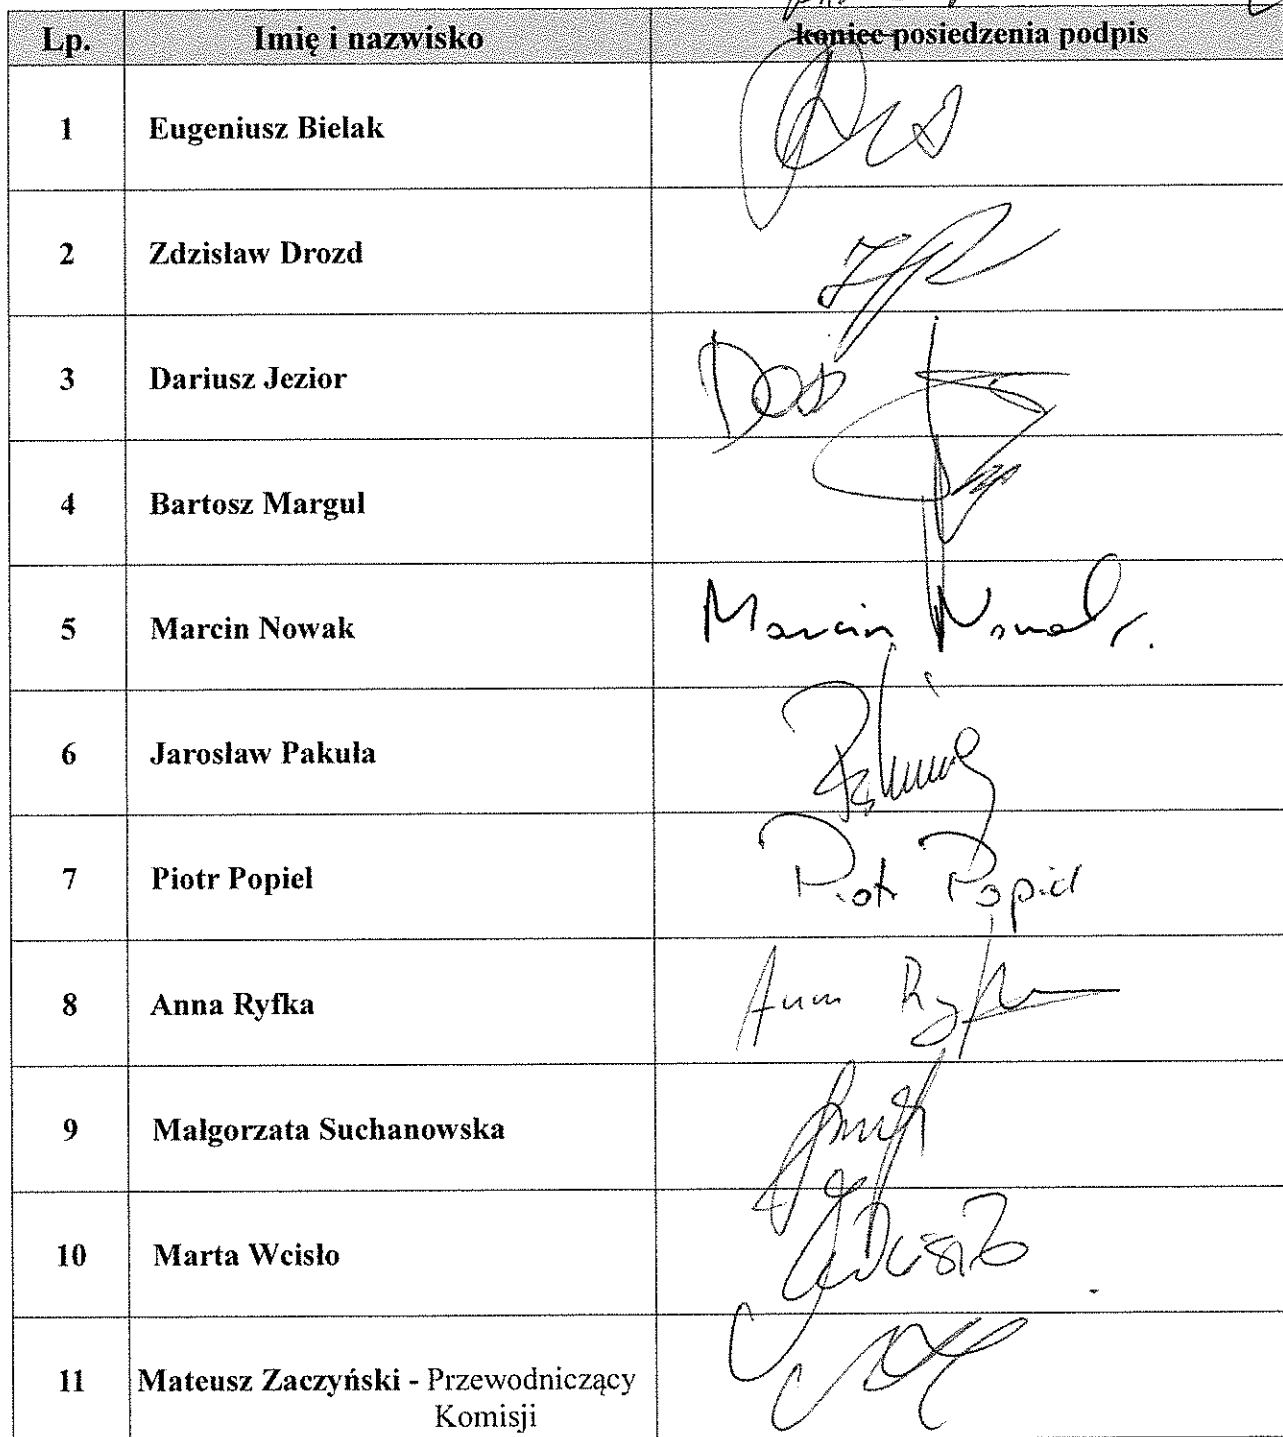 Lp. Imię i nazwisko koniec posiedzenia podpis
1 Eugeniusz Bielak
2 Zdzisław Drozd
3 Dariusz Jezior
4 Bartosz Margul
5 Marcin Nowak Marcin Nowak.
6 Jarosław Pakuła
7 Piotr Popiel Piotr Popiel
8 Anna Ryfka Anna Ryfka
9 Małgorzata Suchanowska
10 Marta Wcisło Wcisło
11 Mateusz Zaczyński - Przewodniczący
Komisji